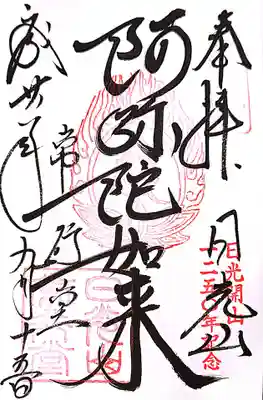 奉拝
日光山
日光開山
一二五〇年記念
阿弥陀如来
常行堂
平成廿八年九月十五日